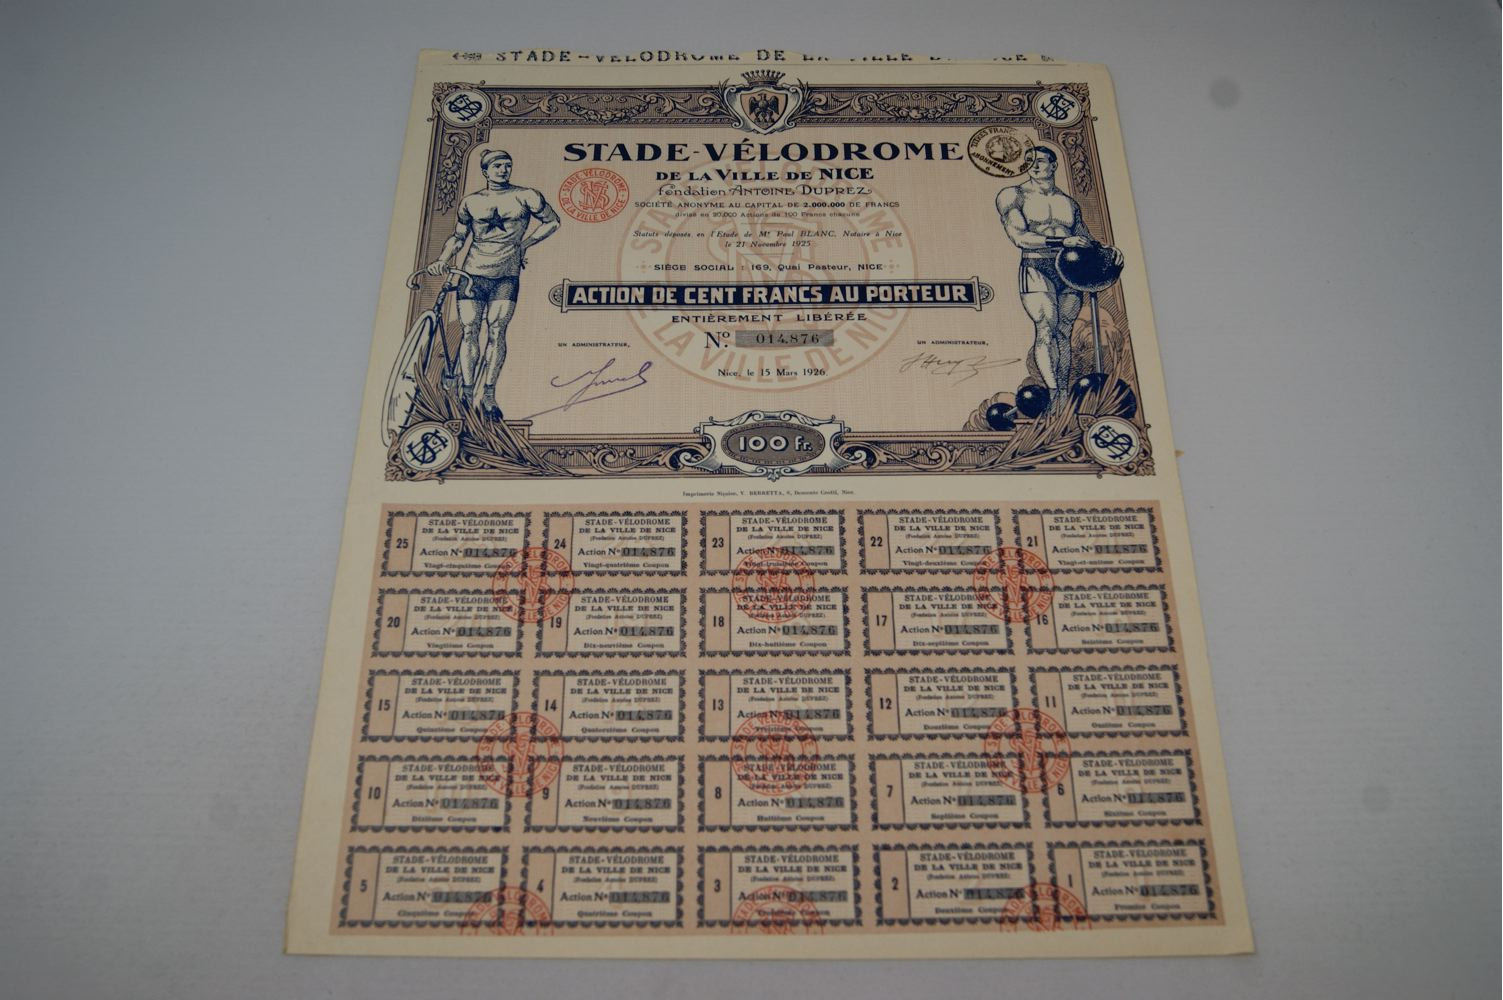 STADE-VÉLODROME DE LA VILLE
STADE-VÉLODROME
DE LA VILLE DE NICE
Fondation ANTOINE DUPREZ
SOCIÉTÉ ANONYME AU CAPITAL DE 2.000.000 DE FRANCS
divisé en 20.000 Actions de 100 Francs chacune
Statuts déposés en l'Etude de Me Paul BLANC, Notaire à Nice
le 21 Novembre 1925
SIÈGE SOCIAL : 169, Quai Pasteur, NICE
ACTION DE CENT FRANCS AU PORTEUR
ENTIÈREMENT LIBÉRÉE
No. 014,876
UN ADMINISTRATEUR,
UN ADMINISTRATEUR,
Nice, le 15 Mars 1926.
100 Fr.
STADE VÉLODROME DE LA VILLE DE NICE
ABONNEMENT
Imprimerie Niçoise, V. BERRETTA, Nice.
25
STADE-VÉLODROME
DE LA VILLE DE NICE
(Fondation Antoine DUPREZ)
Action No 014,876
Vingt-cinquième Coupon
24
STADE-VÉLODROME
DE LA VILLE DE NICE
(Fondation Antoine DUPREZ)
Action No 014,876
Vingt-quatrième Coupon
23
STADE-VÉLODROME
DE LA VILLE DE NICE
(Fondation Antoine DUPREZ)
Action No 014,876
Vingt-troisième Coupon
22
STADE-VÉLODROME
DE LA VILLE DE NICE
(Fondation Antoine DUPREZ)
Action No 014,876
Vingt-deuxième Coupon
21
STADE-VÉLODROME
DE LA VILLE DE NICE
(Fondation Antoine DUPREZ)
Action No 014,876
Vingt-et-unième Coupon
20
STADE-VÉLODROME
DE LA VILLE DE NICE
(Fondation Antoine DUPREZ)
Action No 014,876
Vingtième Coupon
19
STADE-VÉLODROME
DE LA VILLE DE NICE
(Fondation Antoine DUPREZ)
Action No 014,876
Dix-neuvième Coupon
18
STADE-VÉLODROME
DE LA VILLE DE NICE
(Fondation Antoine DUPREZ)
Action No 014,876
Dix-huitième Coupon
17
STADE-VÉLODROME
DE LA VILLE DE NICE
(Fondation Antoine DUPREZ)
Action No 014,876
Dix-septième Coupon
16
STADE-VÉLODROME
DE LA VILLE DE NICE
(Fondation Antoine DUPREZ)
Action No 014,876
Seizième Coupon
15
STADE-VÉLODROME
DE LA VILLE DE NICE
(Fondation Antoine DUPREZ)
Action No 014,876
Quinzième Coupon
14
STADE-VÉLODROME
DE LA VILLE DE NICE
(Fondation Antoine DUPREZ)
Action No 014,876
Quatorzième Coupon
13
STADE-VÉLODROME
DE LA VILLE DE NICE
(Fondation Antoine DUPREZ)
Action No 014,876
Treizième Coupon
12
STADE-VÉLODROME
DE LA VILLE DE NICE
(Fondation Antoine DUPREZ)
Action No 014,876
Douzième Coupon
11
STADE-VÉLODROME
DE LA VILLE DE NICE
(Fondation Antoine DUPREZ)
Action No 014,876
Onzième Coupon
10
STADE-VÉLODROME
DE LA VILLE DE NICE
(Fondation Antoine DUPREZ)
Action No 014,876
Dixième Coupon
9
STADE-VÉLODROME
DE LA VILLE DE NICE
(Fondation Antoine DUPREZ)
Action No 014,876
Neuvième Coupon
8
STADE-VÉLODROME
DE LA VILLE DE NICE
(Fondation Antoine DUPREZ)
Action No 014,876
Huitième Coupon
7
STADE-VÉLODROME
DE LA VILLE DE NICE
(Fondation Antoine DUPREZ)
Action No 014,876
Septième Coupon
6
STADE-VÉLODROME
DE LA VILLE DE NICE
(Fondation Antoine DUPREZ)
Action No 014,876
Sixième Coupon
5
STADE-VÉLODROME
DE LA VILLE DE NICE
(Fondation Antoine DUPREZ)
Action No 014,876
Cinquième Coupon
4
STADE-VÉLODROME
DE LA VILLE DE NICE
(Fondation Antoine DUPREZ)
Action No 014,876
Quatrième Coupon
3
STADE-VÉLODROME
DE LA VILLE DE NICE
(Fondation Antoine DUPREZ)
Action No 014,876
Troisième Coupon
2
STADE-VÉLODROME
DE LA VILLE DE NICE
(Fondation Antoine DUPREZ)
Action No 014,876
Deuxième Coupon
1
STADE-VÉLODROME
DE LA VILLE DE NICE
(Fondation Antoine DUPREZ)
Action No 014,876
Premier Coupon